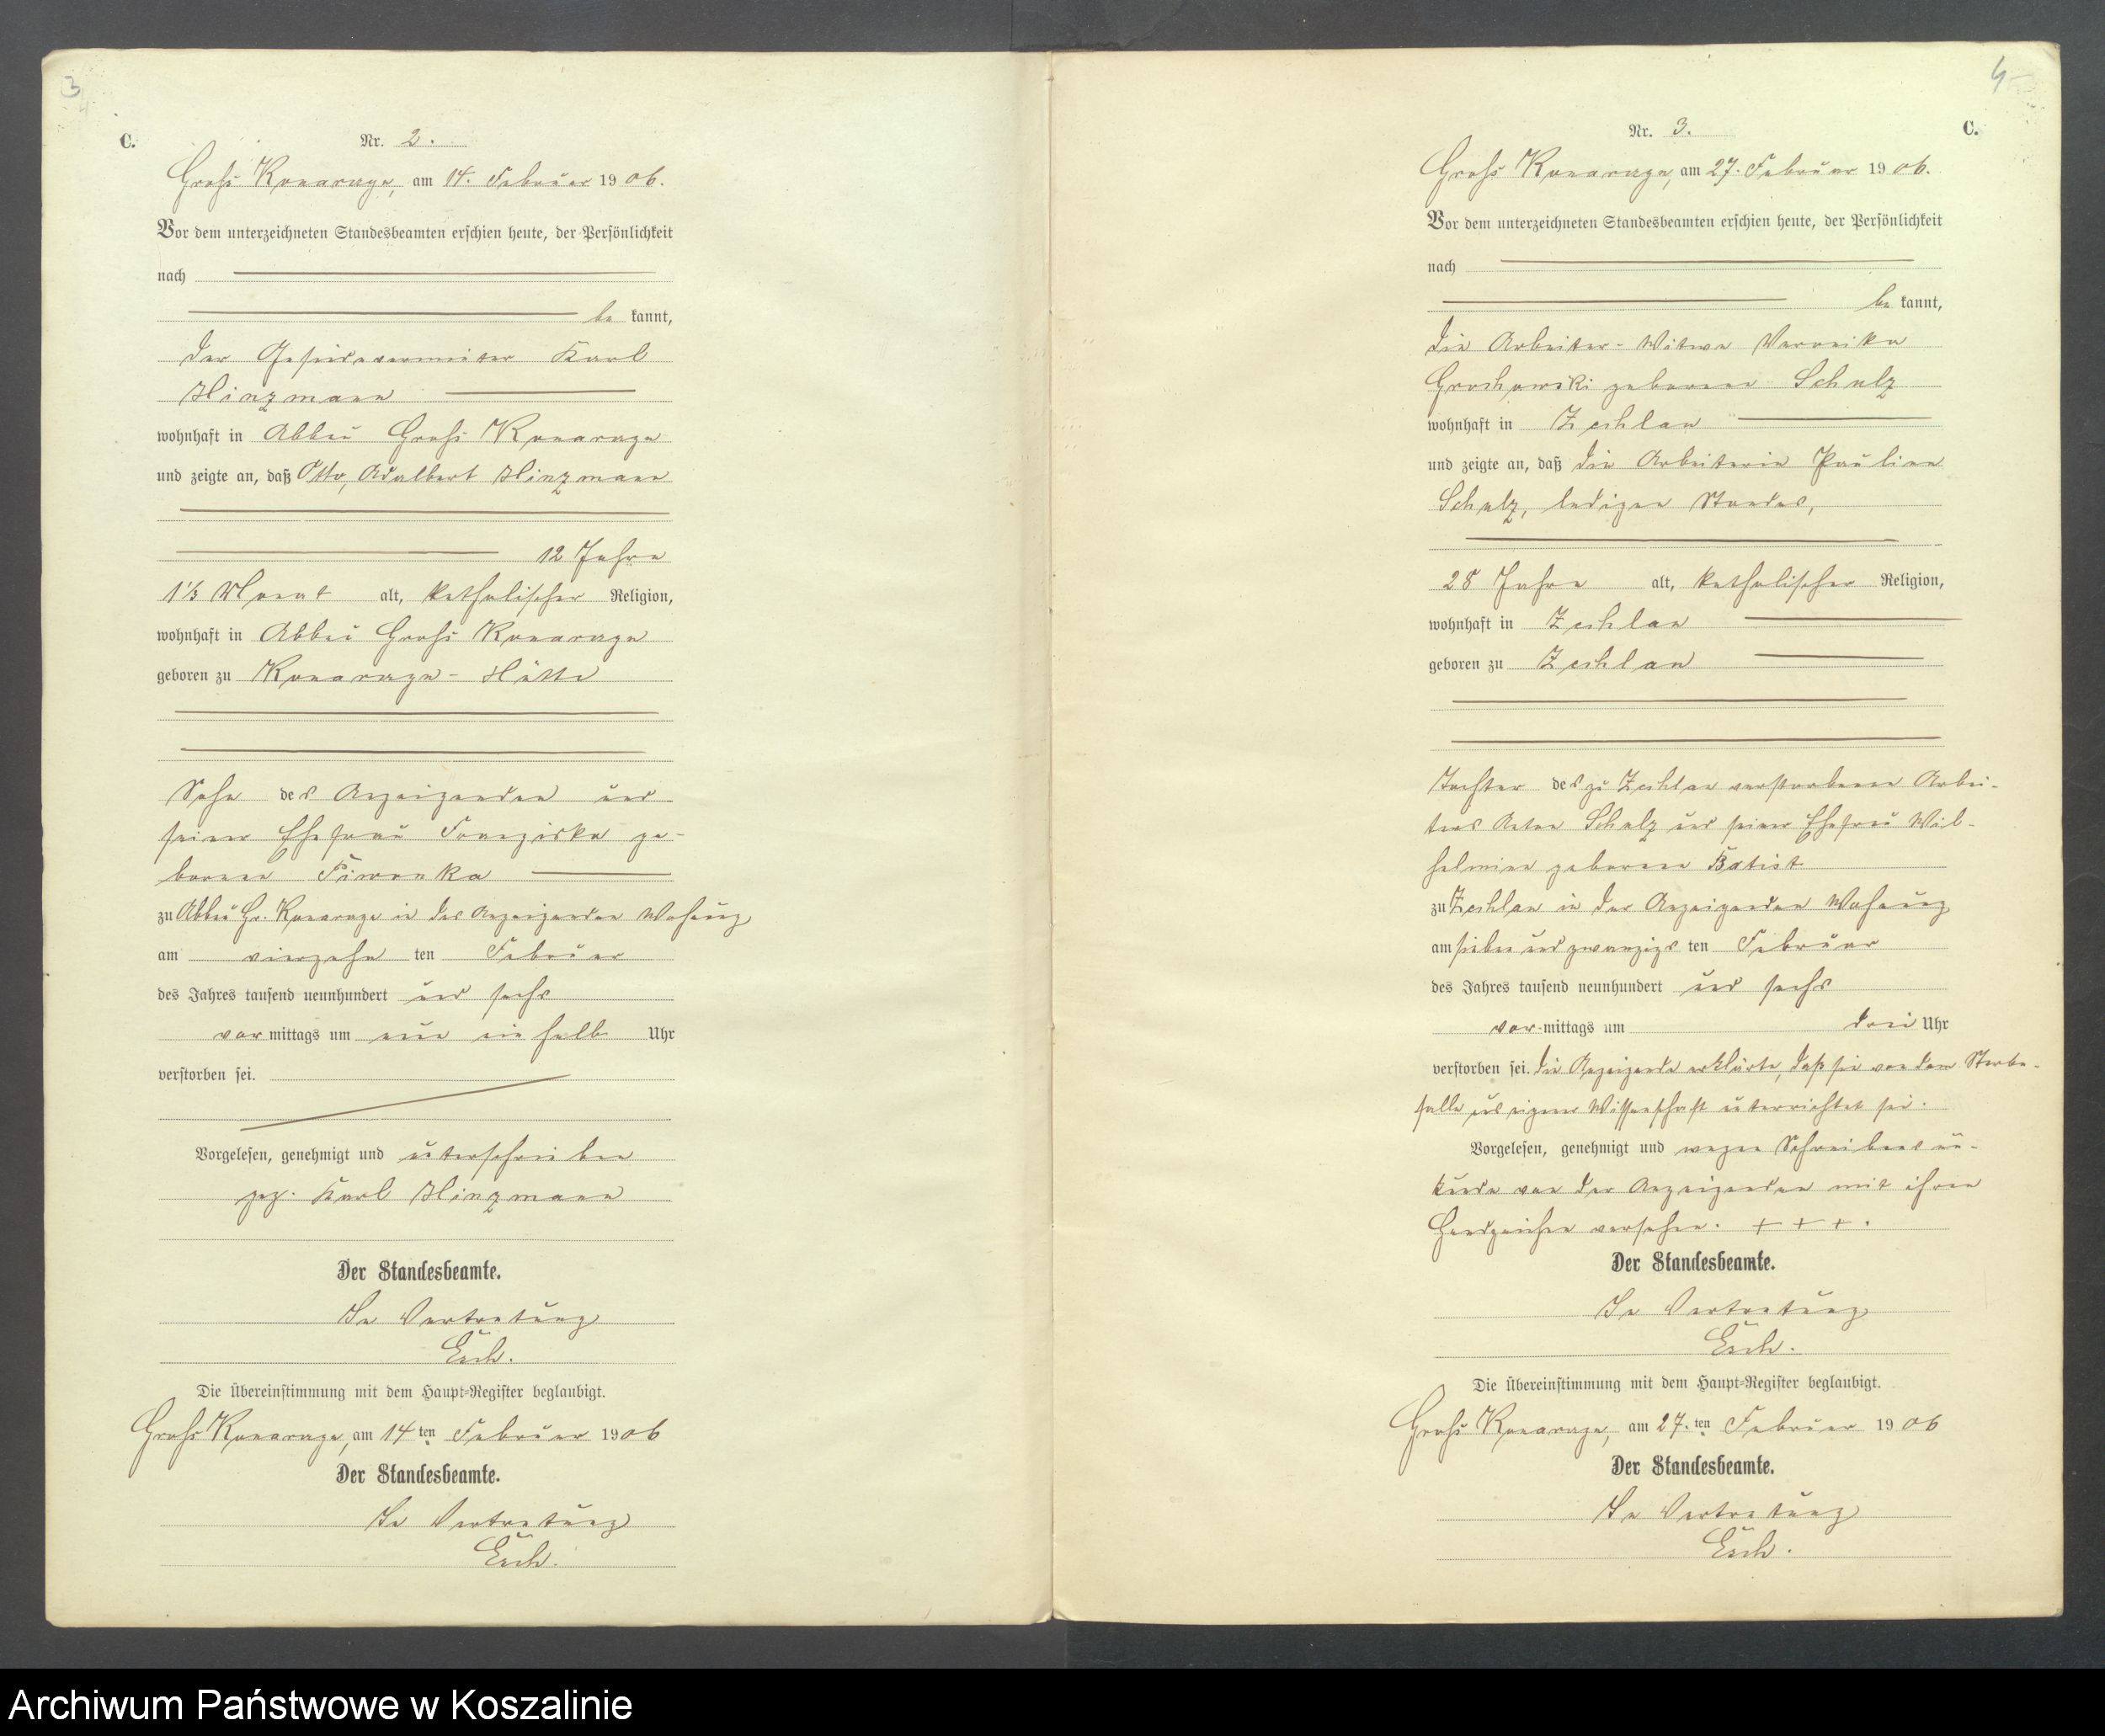 3
C.
Nr. 2.
Groß Konarczyn, am 14. Februar 1906.
Vor dem unterzeichneten Standesbeamten erschien heute, der Persönlichkeit
nach
be kannt,
der Karl
Hinzmann
wohnhaft in Abbau Groß Konarczyn
und zeigte an, daß Otto, Adalbert Hinzmann
12 Jahre
1⅓ Monat alt, katholischer Religion,
wohnhaft in Abbau Groß Konarczyn
geboren zu Konarczyn-Hütte
Sohn des Anzeigenden und
seiner Ehefrau Franziska ge-
borene Piwonka
zu Abbau Gr. Konarczyn in des Anzeigenden Wohnung
am vierzehn ten Februar
des Jahres tausend neunhundert und sechs
vor mittags um neun ein halb Uhr
verstorben sei.
Vorgelesen, genehmigt und unterschrieben
gez. Karl Hinzmann
Der Standesbeamte.
In Vertretung
Esch.
Die Übereinstimmung mit dem Haupt-Register beglaubigt.
Groß Konarczyn, am 14 ten Februar 1906
Der Standesbeamte.
In Vertretung
Esch.
4
Nr. 3.
C.
Groß Konarczyn, am 27. Februar 1906.
Vor dem unterzeichneten Standesbeamten erschien heute, der Persönlichkeit
nach
be kannt,
die Arbeiter-Witwe Veronika
Grochowski geborene Schulz
wohnhaft in Zechlau
und zeigte an, daß die Arbeiterin Pauline
Schulz, ledigen Standes,
28 Jahre alt, katholischer Religion,
wohnhaft in Zechlau
geboren zu Zechlau
Tochter des zu Zechlau verstorbenen Arbei-
ters Anton Schulz und seiner Ehefrau Wil-
helmine geborene Batist
zu Zechlau in der Anzeigenden Wohnung
am sieben und zwanzigs ten Februar
des Jahres tausend neunhundert und sechs
vor mittags um drei Uhr
verstorben sei. Die Anzeigende erklärte, daß sie von dem Sterbe-
falle aus eigener Wissenschaft unterrichtet sei.
Vorgelesen, genehmigt und wegen Schreibensun-
kunde von der Anzeigenden mit ihren
Handzeichen versehen. + + + .
Der Standesbeamte.
In Vertretung
Esch.
Die Übereinstimmung mit dem Haupt-Register beglaubigt.
Groß Konarczyn, am 27. ten Februar 1906
Der Standesbeamte.
In Vertretung
Esch.
Archiwum Państwowe w Koszalinie